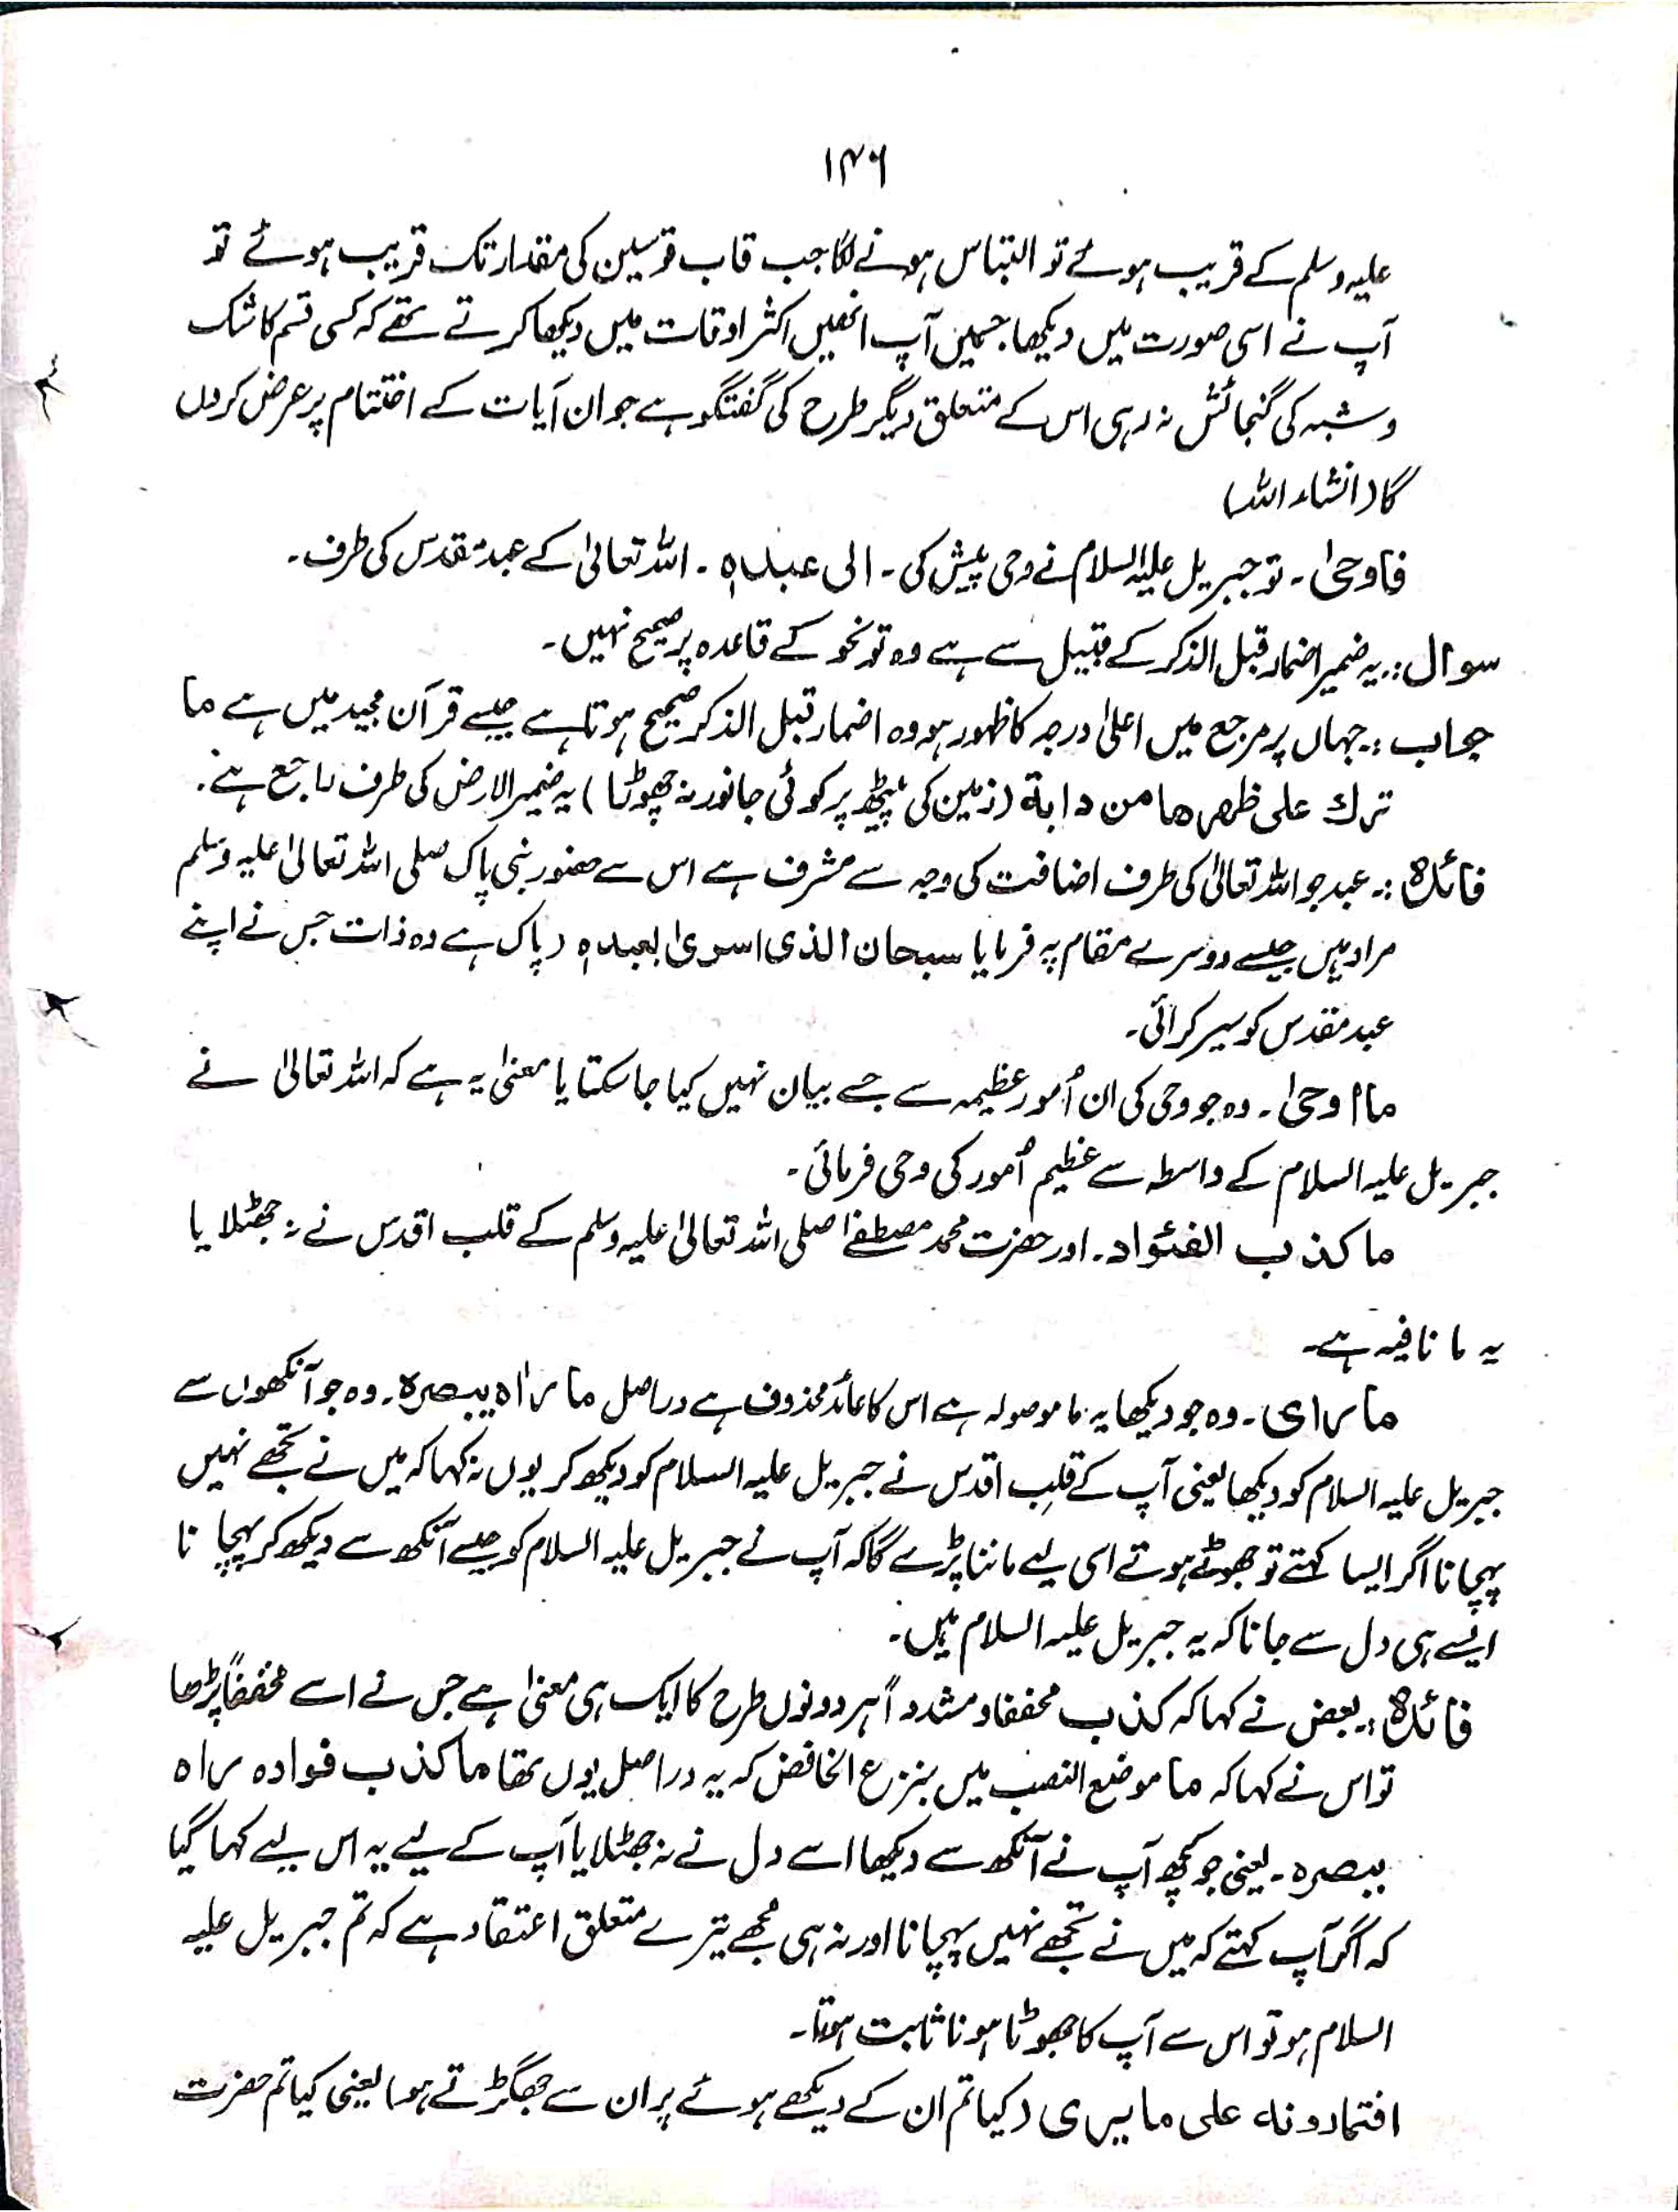 ۱۴۶
علیہ وسلم کے قریب ہوئے تو التباس ہونے لگا جب قاب قوسین کی مقدار تک قریب ہوئے تو
آپ نے اسی صورت میں دیکھا جسمیں آپ انھیں اکثر اوقات میں دیکھا کرتے تھے کہ کسی قسم کا شک
و شبہ کی گنجائش نہ رہی اس کے متعلق دیگر طرح کی گفتگو ہے جو ان آیات کے اختتام پر عرض کردں
گا (انشاء اللہ)
فاوحیٰ۔ تو جبریل علیہ السلام نے وحی پیش کی۔ الی عبدہٖ۔ اللہ تعالیٰ کے عبد مقدس کی طرف۔
سوال:۔ یہ ضمیر اضمار قبل الذکر کے قبیل سے ہے وہ تو نحو کے قاعدہ پر صحیح نہیں۔
جواب:۔ جہاں پر مرجع میں اعلیٰ درجہ کا ظہور ہو وہ اضمار قبل الذکر صحیح ہوتا ہے جیسے قرآن مجید میں ہے ما
ترک علی ظھرھا من دابة (زمین کی پیٹھ پر کوئی جانور نہ چھوڑتا) یہ ضمیر الارض کی طرف راجع ہے۔
فائدہ:۔ عبد جو اللہ تعالیٰ کی طرف اضافت کی وجہ سے مشرف ہے اس سے حضور نبی پاک صلی اللہ تعالیٰ علیہ وسلم
مراد ہیں جیسے دوسرے مقام پہ فرمایا سبحان الذی اسریٰ بعبدہٖ (پاک ہے وہ ذات جس نے اپنے
عبد مقدس کو سیر کرائی۔
ما اوحیٰ۔ وہ جو وحی کی ان اُمور عظیمہ سے جسے بیان نہیں کیا جا سکتا یا معنیٰ یہ ہے کہ اللہ تعالیٰ نے
جبریل علیہ السلام کے واسطہ سے عظیم اُمور کی وحی فرمائی۔
ما کذب الفئواد۔ اور حضرت محمد مصطفےٰ صلی اللہ تعالیٰ علیہ وسلم کے قلب اقدس نے نہ جھٹلایا
یہ ما نافیہ ہے۔
ما رای۔ وہ جو دیکھا یہ ما موصولہ ہے اس کا عائد محذوف ہے دراصل ما راٰہ ببصرہ۔ وہ جو آنکھوں سے
جبریل علیہ السلام کو دیکھا یعنی آپ کے قلب اقدس نے جبریل علیہ السلام کو دیکھ کر یوں نہ کہا کہ میں نے تجھے نہیں
پہچانا اگر ایسا کہتے تو جھوٹے ہوتے اسی لیے ماننا پڑے گا کہ آپ نے جبریل علیہ السلام کو جیسے آنکھ سے دیکھ کر پہچانا
ایسے ہی دل سے جانا کہ یہ جبریل علیہ السلام ہیں۔
فائدہ:۔ بعض نے کہا کہ کذب مخففا و مشدداً ہر دونوں طرح کا ایک ہی معنیٰ ہے جس نے اسے مخففاً پڑھا
تو اس نے کہا کہ ما موضع النصب میں بنزع الخافض کہ یہ دراصل یوں تھا ما کذب فوادہ راہ
ببصرہ۔ یعنی جو کچھ آپ نے آنکھ سے دیکھا اسے دل نے نہ جھٹلایا آپ کے لیے یہ اس لیے کہا گیا
کہ اگر آپ کہتے کہ میں نے تجھے نہیں پہچانا اور نہ ہی مجھے تیرے متعلق اعتقاد ہے کہ تم جبریل علیہ
السلام ہو تو اس سے آپ کا جھوٹا ہونا ثابت ہوتا۔
افتمارونه علی ما یری (کیا تم ان کے دیکھے ہوئے پر ان سے جھگڑتے ہو) یعنی کیا تم حضرت